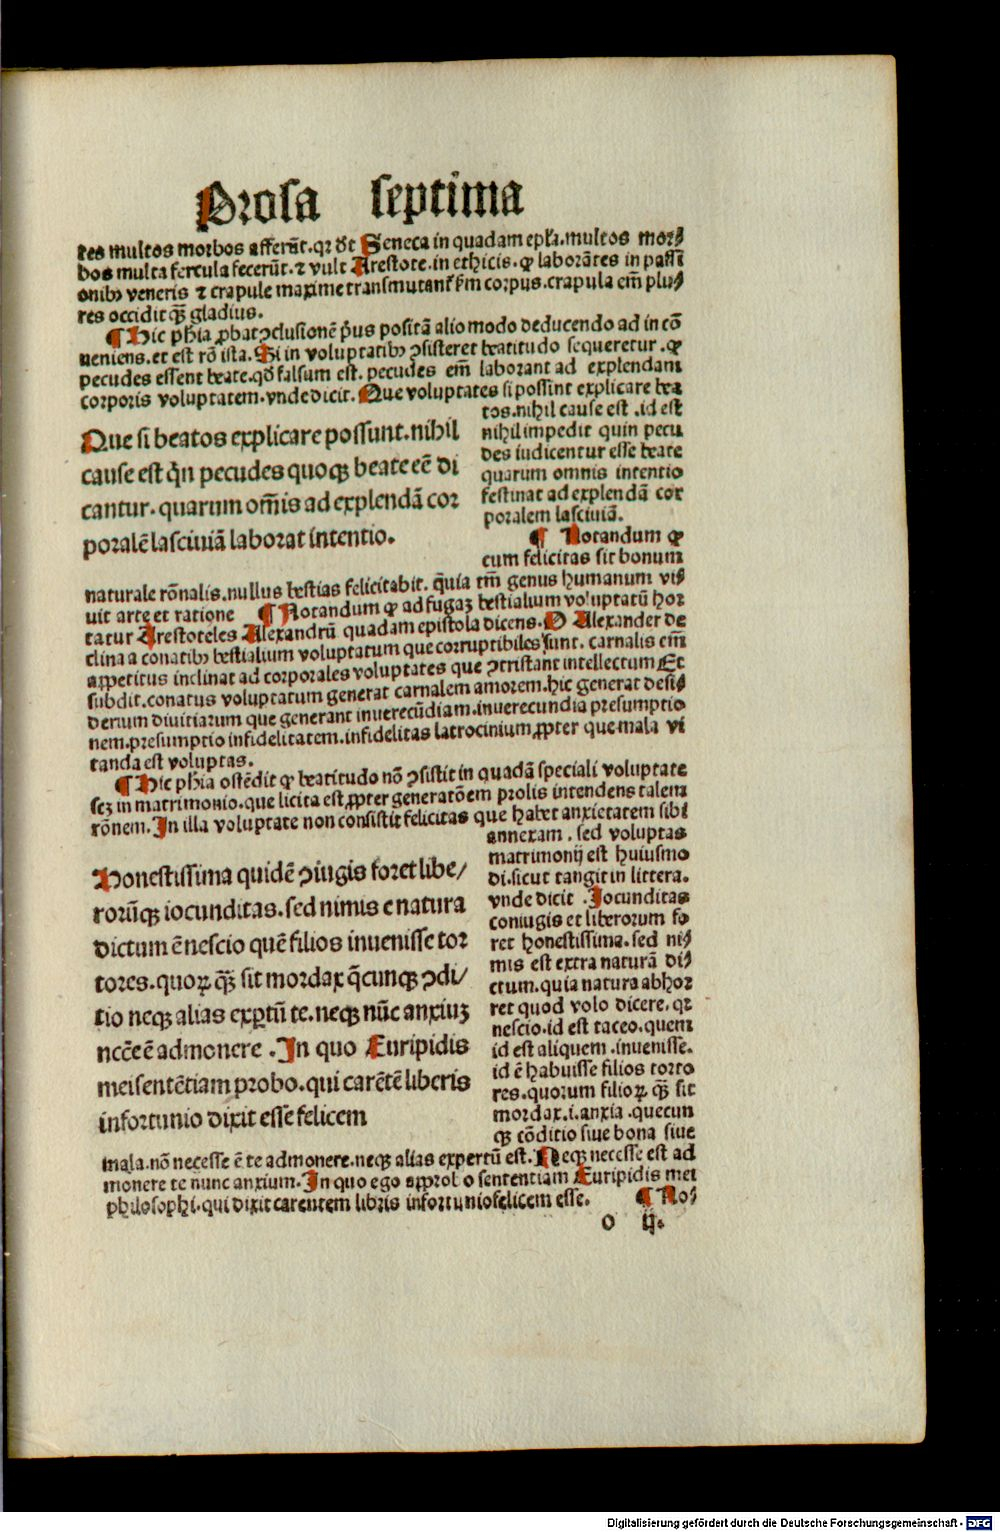 Prosa septima
res multos morbos afferūt. qꝛ dt Seneca in quadam epła. multos mor⸗
bos multa fercula fecerūt. ⁊ vult Arestote. in ethicis. ꝙ laborātes in passi
onibꝰ veneris ⁊ crapule maxime transmutant̄ s̄m corpus. crapula em̄ plu⸗
res occidit q̄ꝫ gladius.
¶ Hic phīa ꝓbat ꝯclusionē p̄us positā alio modo deducendo ad in cō
ueniens. et est rō ista. Si in voluptatibꝰ ꝯsisteret beatitudo sequeretur. ꝙ
pecudes essent beate. qd̄ falsum est. pecudes em̄ laborant ad explendam
corporis voluptatem. vnde dicit. Que voluptates si possint explicare bea
tos. nihil cause est. id est
nihil impedit quin pecu
des iudicentur esse beate
quarum omnis intentio
festinat ad explendā cor
poralem lasciuiā.
¶ Notandum ꝙ
cum felicitas sit bonum
Que si beatos explicare possunt. nihil
cause est q̄n pecudes quoqꝫ beate eē di
cantur. quarum om̄is ad explendā cor
poralē lasciuiā laborat intentio.
naturale rōnalis. nullus bestias felicitabit. q̄uia tm̄ genus humanum vi⸗
uit arte et ratione ¶ Notandum ꝙ ad fugaꝫ bestialium voluptatū hor
tatur Arestoteles Alexandrū quadam epistola dicens. O Alexander de
clina a conatibꝰ bestialium voluptatum que corruptibiles sunt. carnalis em̄
appetitus inclinat ad corporales voluptates que ꝯtristant intellectum Et
subdit. conatus voluptatum generat carnalem amorem. hic generat desi⸗
derium diuitiarum que generant inuerecūdiam. inuerecundia presumptio
nem. presumptio infidelitatem. infidelitas latrocinium ꝓpter que mala vi
tanda est voluptas.
¶ Hic phīa ostēdit ꝙ beatitudo nō ꝯsistit in quadā speciali voluptate
seꝫ in matrimonio. que licita est ꝓpter generatōem prolis intendens talem
rōnem. In illa voluptate non consistit felicitas que habet anxietatem sibi
annexam. sed voluptas
matrimonij est huiusmo
di. sicut tangit in littera.
vnde dicit. Jocunditas
coniugis et liberorum fo
ret honestissima. sed ni⸗
mis est extra naturā di⸗
ctum. quia natura abhor
ret quod volo dicere. qꝛ
nescio. id est taceo. quem
id est aliquem. inuenisse.
id ē habuisse filios torto
res. quorum filioꝝ q̄ꝫ sit
mordax. i. anxia. quecun
qꝫ cōditio siue bona siue
Honestissima quidē ꝯiugis foret libe/
rorūqꝫ iocunditas. sed nimis e natura
dictum ē nescio quē filios inuenisse tor
tores. quoꝝ q̄ꝫ sit mordax q̄cunqꝫ ꝯdi/
tio neqꝫ alias exp̱tū te. neqꝫ nūc anxiuꝫ
nccē ē admonere. In quo Euripidis
mei sentētiam probo. qui carētē liberis
infortunio dixit esse felicem
mala. nō necesse ē te admonere. neqꝫ alias expertū est. Neqꝫ necesse est ad
monere te nunc anxium. In quo ego approbo sententiam Euripidis mei
philosophi. qui dixit carentem libris infortunio felicem esse. ¶ No⸗
o ij.
Digitalisierung gefördert durch die Deutsche Forschungsgemeinschaft - DFG